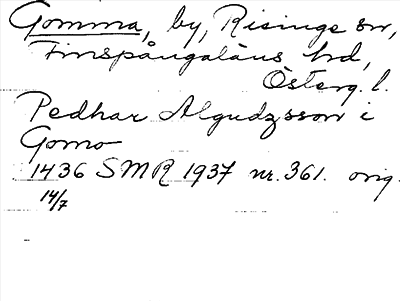 Gomma, by, Risinge sn,
Finspångaläns hd,
Österg. l.
Pedhar Algudzsson i
Gomo
1436 SMR 1937 nr. 361. orig.
14/7